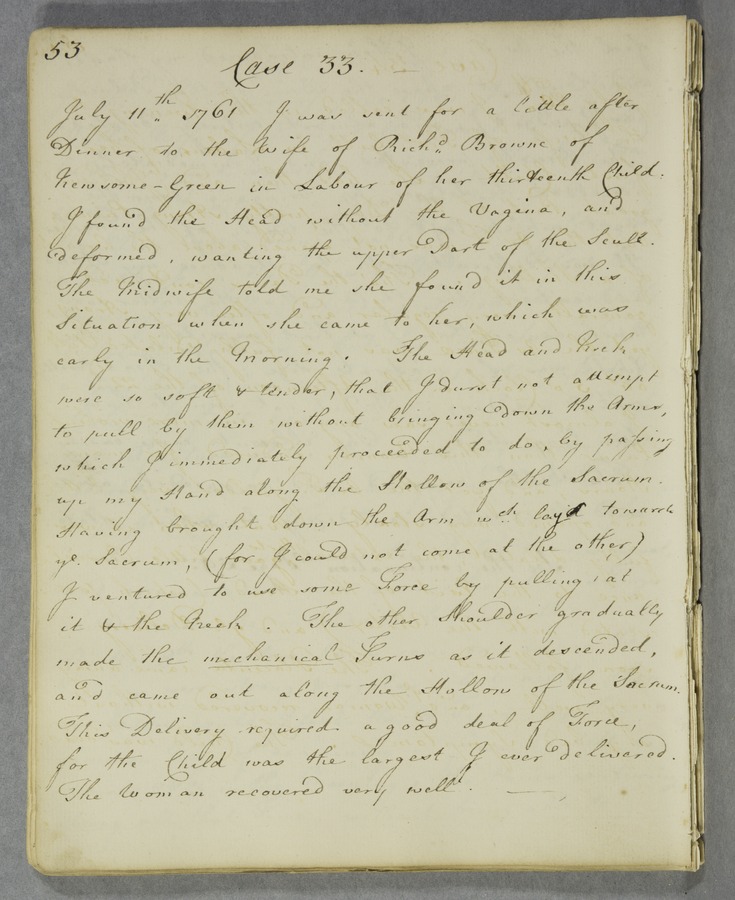 53
Case 33. —
July 11th 1761 I was sent for a little after
Dinner to the Wife of Richd. Browne of
Newsome-Green in Labour of her thirteenth Child.
I found the Head without the Vagina, and
deformed, wanting the upper Part of the Scull.
The Midwife told me she found it in this
Situation when she came to her, which was
early in the Morning. The Head and Neck
were so soft & tender, that I durst not attempt
to pull by them without bringing down the Arms,
which I immediately proceeded to do, by passing
up my Hand along the Hollow of the Sacrum.
Having brought down the Arm wch layd towards
ye. Sacrum, (for I could not come at the other)
I ventured to use some Force by pulling at
it & the Neck. The other Shoulder gradually
made the mechanical Turns as it descended,
and came out along the Hollow of the Sacrum.
This Delivery required a good deal of Force,
for the Child was the largest I ever delivered.
The Woman recovered very well. —